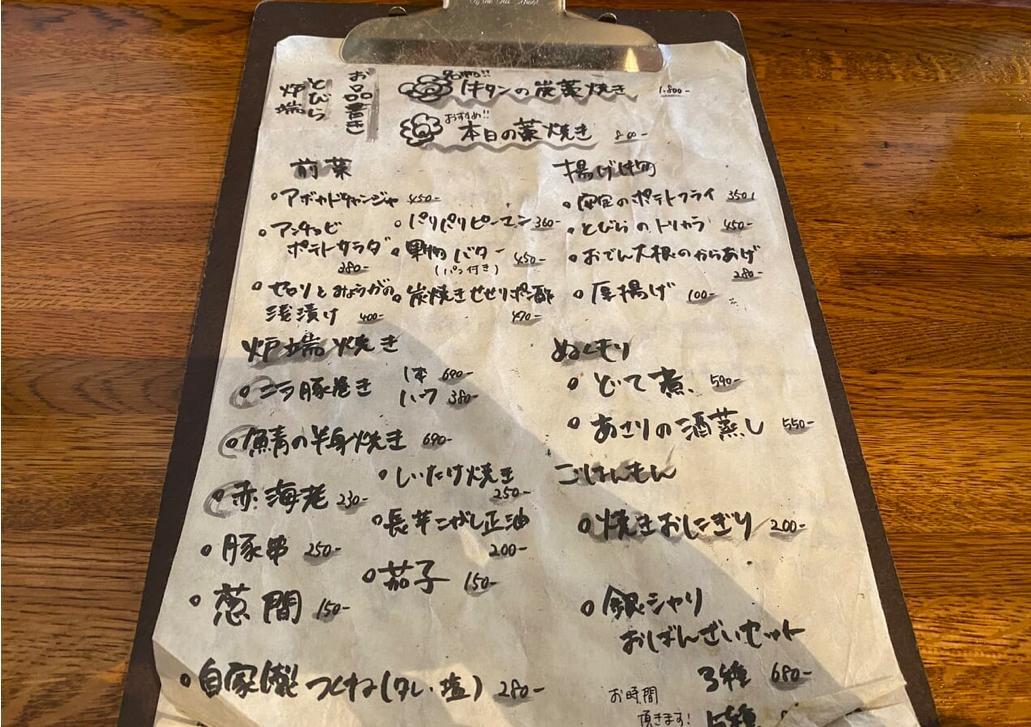 お品書き
とびら
炉端
名物!!
牛タンの炭藁焼き 1,800-
おすすめ!!
本日の藁焼き
前菜
アボカドチャンジャ 450-
アンチョビ
ポテトサラダ
380-
セロリとみょうがの
浅漬け 400-
パリパリピーマン 360-
果物バター 450-
(パン付き)
炭焼きせせりポン酢
490-
揚げ物
安定のポテトフライ 350
とびらのトリカラ 450-
おでん大根のからあげ
280-
厚揚げ 100-
炉端焼き
ニラ豚巻き 1本 690-
ハーフ 380-
鯖の半身焼き 690-
赤海老 230-
豚串 250-
葱間 150-
自家製つくね(タレ・塩) 280-
しいたけ焼き
250-
長芋こがし正油
200-
茄子 150-
ぬくもり
どて煮 590-
あさりの酒蒸し 550-
ごはんもん
焼きおにぎり 200-
銀シャリ
おばんざいセット
3種 680-
お時間
頂きます!
5種